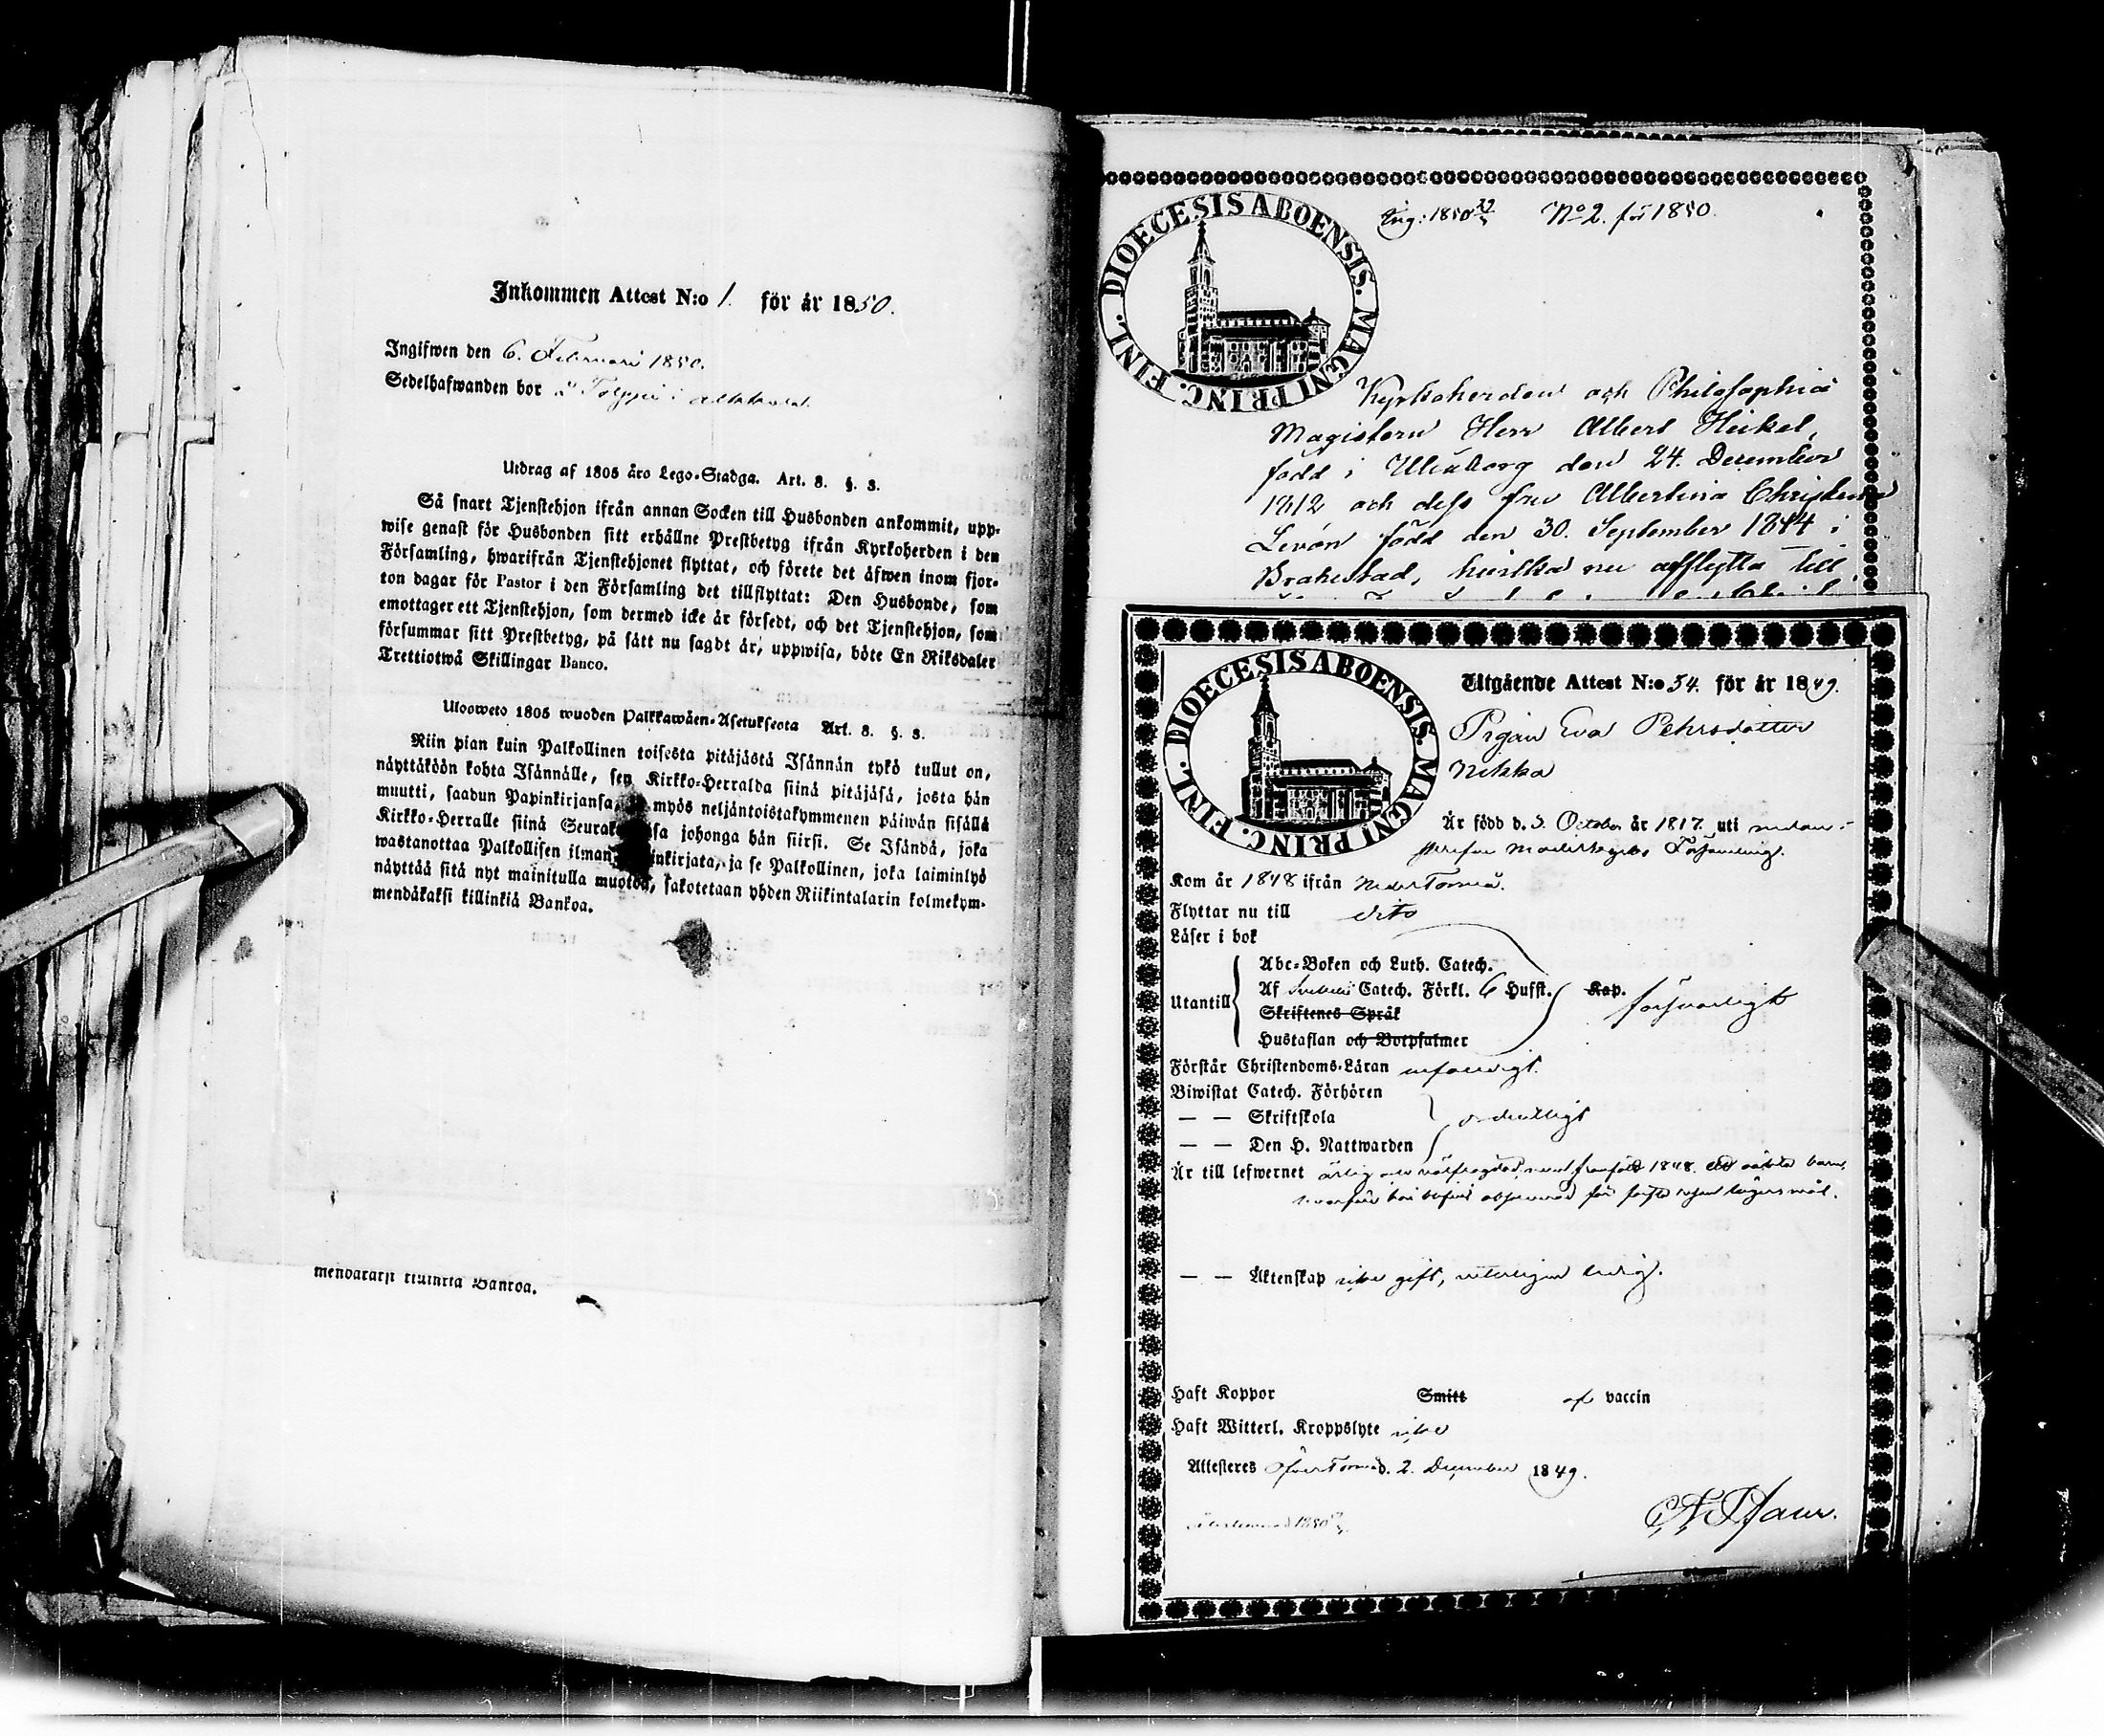 Inkommen Attest N:o 1. för år 1850.
Ingifwen den 6. Februari 1850.
Sedelhafwanden bor
Utdrag af 1805 åro Lego-Stadga. Art. 8. §. 3.
Så snart Tjenstehjon ifrån annan Socken till Husbonden ankommit, upp-
wise genast för Husbonden sitt erhållne Prestbetyg ifrån Kyrkoherden i den
Församling, hwarifrån Tjenstehjonet flyttat, och förete det äfwen inom fjor-
ton dagar för Pastor i den Församling det tillflyttat: Den Husbonde, som
emottager ett Tjenstehjon, som dermed icke är försedt, och det Tjenstehjon, som
försummar sitt Prestbetyg, på sätt nu sagdt är, uppwisa, böte En Riksdaler
Trettiotwå Skillingar Banco.
Uloosweto 1805 wuoden Palkkawäen-Asetuksesta Art. 8. §. 3.
Niin pian kuin Palkollinen toisesta pitäjästä Isännän tykö tullut on,
näyttäköön kohta Isännälle, sen Kirkko-Herralda siinä pitäjäsä, josta hän
muutti, saadun Papinkirjansa, myös neljäntoistakymmenen päiwän sisällä
Kirkko-Herralle siinä johonga hän siirsi. Se Isändä, joka
wastanottaa Palkollisen ilman ja se Palkollinen, joka laiminlyö
näyttää sitä nyt mainitulla muotoa, sakotetaan yhden Riikintalarin kolmekym-
mendäkaksi killinkiä Bankoa.
mendäkaksi killinkiä Bankoa.
DIOECESIS ABOENSIS. MAGNI PRINC. FINL.
Ing: 1850 No 2. för 1850.
Kyrkoherden och Philosophiæ
Magistern Herr Albert Heikel,
född i Uleåborg den 24. December
1812 och dess fru Albertina Christina
Levón född den 30. September 1844 i
Brahestad, hvilka nu afflytta till
DIOECESIS ABOENSIS. MAGNI PRINC. FINL.
Utgående Attest N:o 34. för år 1849.
Pigan Eva Pehrsdotter
Nikka
Är född d. 5. October år 1817. uti
Församling.
Kom år 1848 ifrån NederTorneå.
Flyttar nu till dito
Läser i bok
Abc-Boken och Luth. Catech.
Utantill Af Svebelii Catech. Förkl. 6 Hufst. Kap. försvarligt
Skriftenes Språk
Hustaflan och Botpsalmer
Förstår Christendoms-Läran
Biwistat Catech. Förhören
— — Skriftskola ordentligt
— — Den H. Nattwarden
Är till lefwernet ärlig 1848.
— — Äktenskap icke gift, ledig.
Haft Koppor Smitt af vaccin
Haft Witterl. Kroppslyte icke
Attesteres ÖfverTorneå d. 2. December 1849.